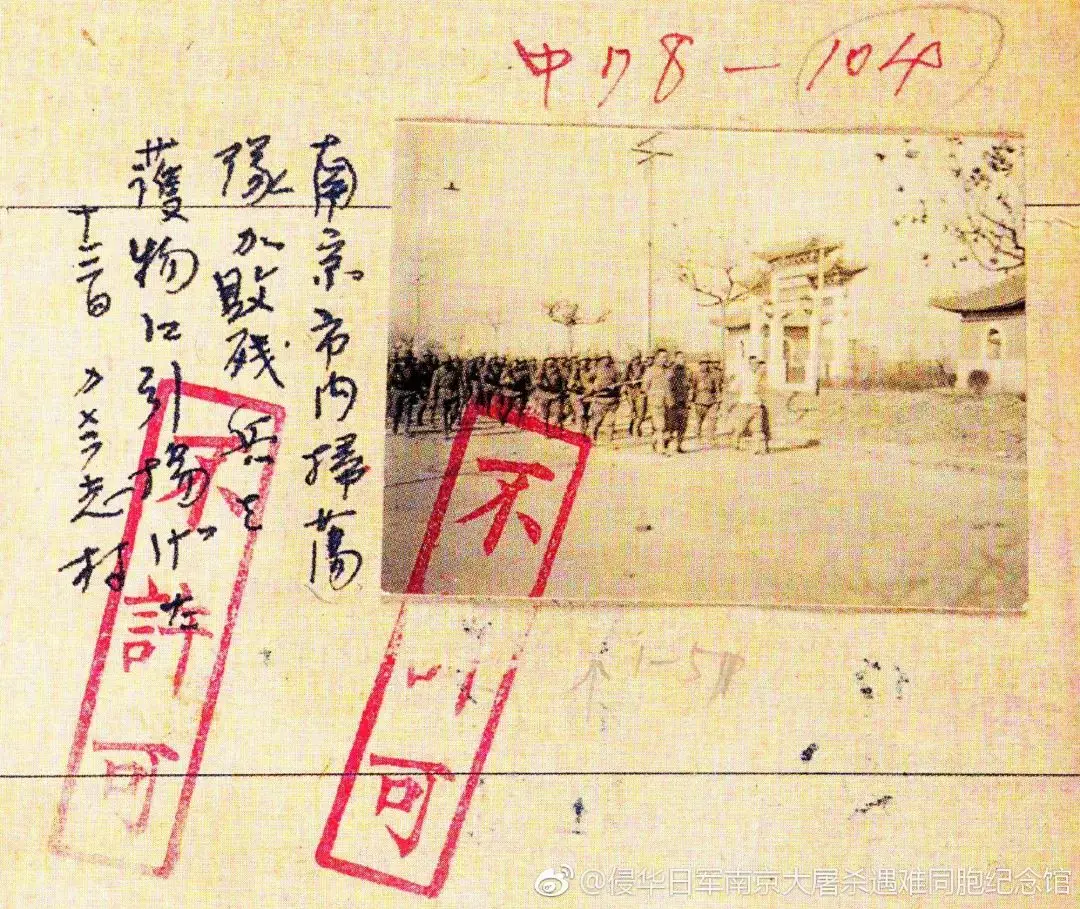 中178-104
南京市内掃蕩
隊が敗残兵を
獲物に引揚げた
十二月
志村
不許可
不
可
1-5
@侵华日军南京大屠杀遇难同胞纪念馆